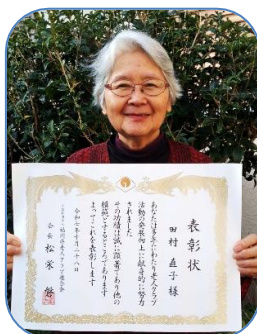 表彰状
田村直子様
あなたは多年にわたり老人クラブ
活動の発展向上に献身的に努力
されました
その功績は誠に顕著であり他の
模範とするところであります
よってこれを表彰します
令和七年十月二十八日
福岡県老人クラブ連合会
会長 松栄